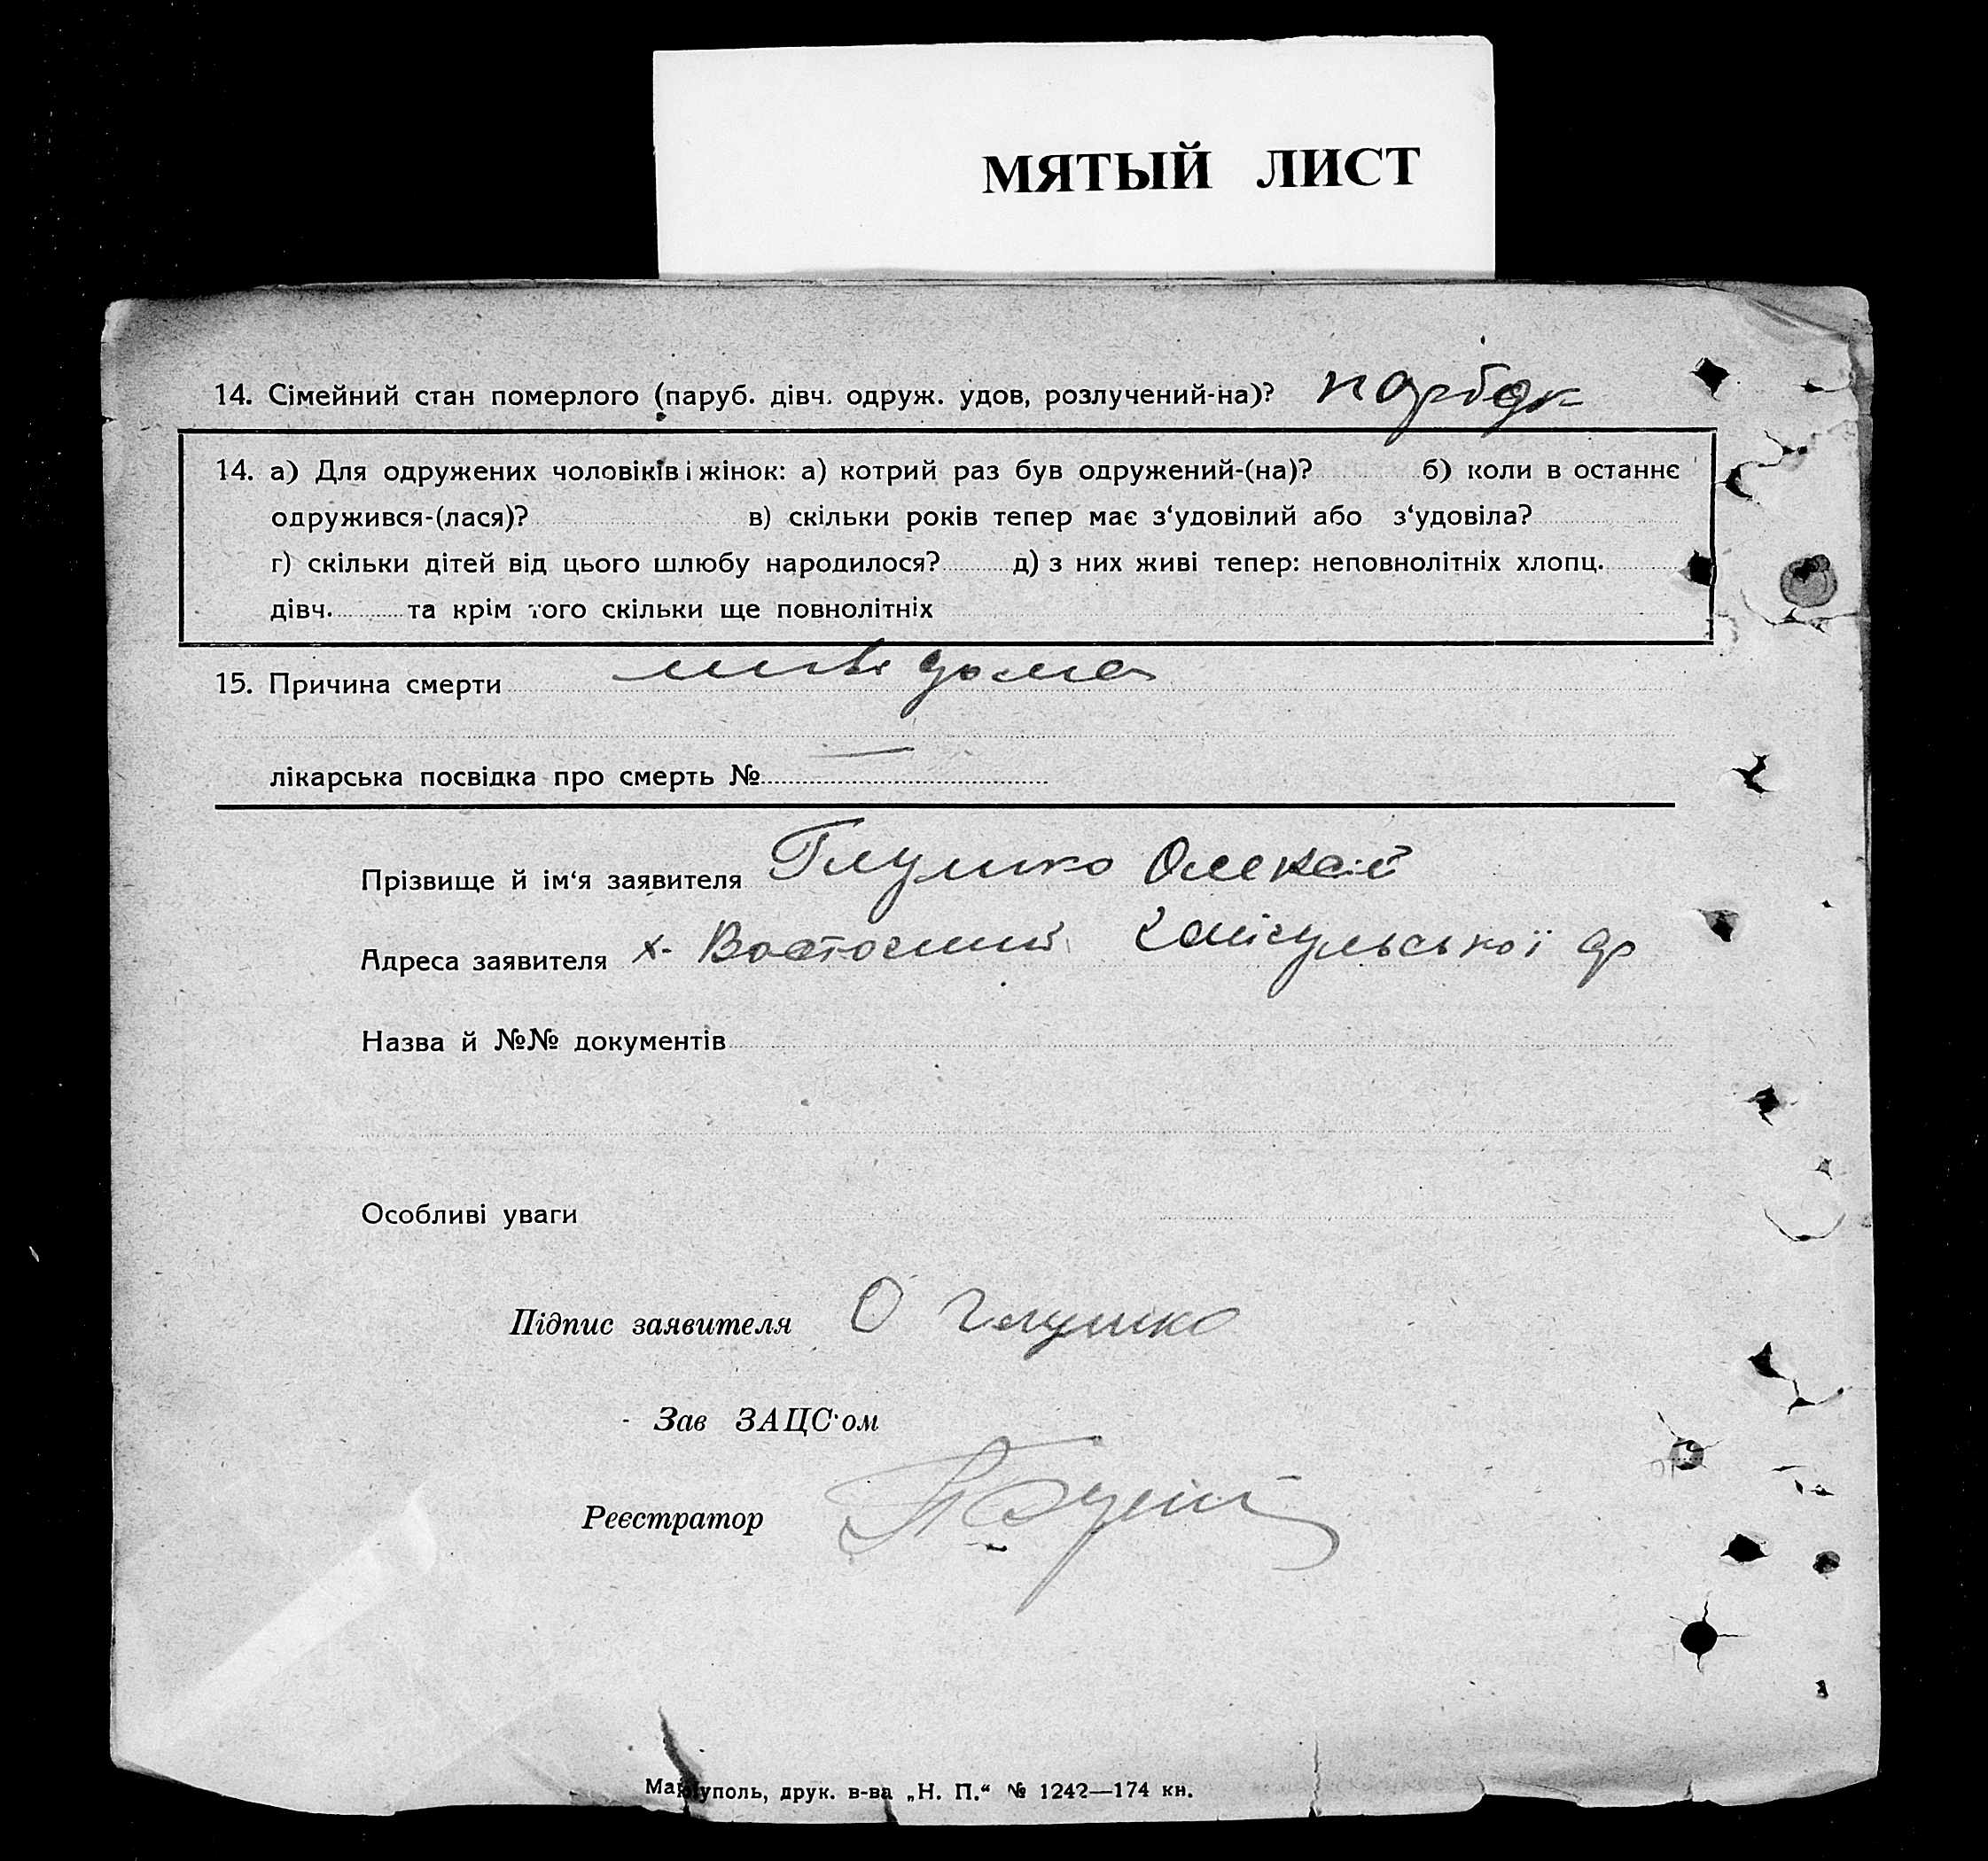 МЯТЫЙ ЛИСТ
14. Сімейний стан померлого (паруб. дівч. одруж. удов, розлучений-на)? парбок
14. а) Для одружених чоловіків і жінок: а) котрий раз був одружений-(на)? б) коли в останнє
одружився-(лася)? в) скільки років тепер має з‘удовілий або з‘удовіла?
г) скільки дітей від цього шлюбу народилося? д) з них живі тепер: неповнолітніх хлопц.
дівч. та крім того скільки ще повнолітніх
15. Причина смерти
лікарська посвідка про смерть № —
Прізвище й ім‘я заявителя Глушко Олексій
Адреса заявителя х. Восточний
Назва й №№ документів
Особливі уваги
Підпис заявителя О Глушко
Зав ЗАЦС‘ом
Реєстратор
Маріуполь, друк. в-ва „Н. П.“ № 1242—174 кн.